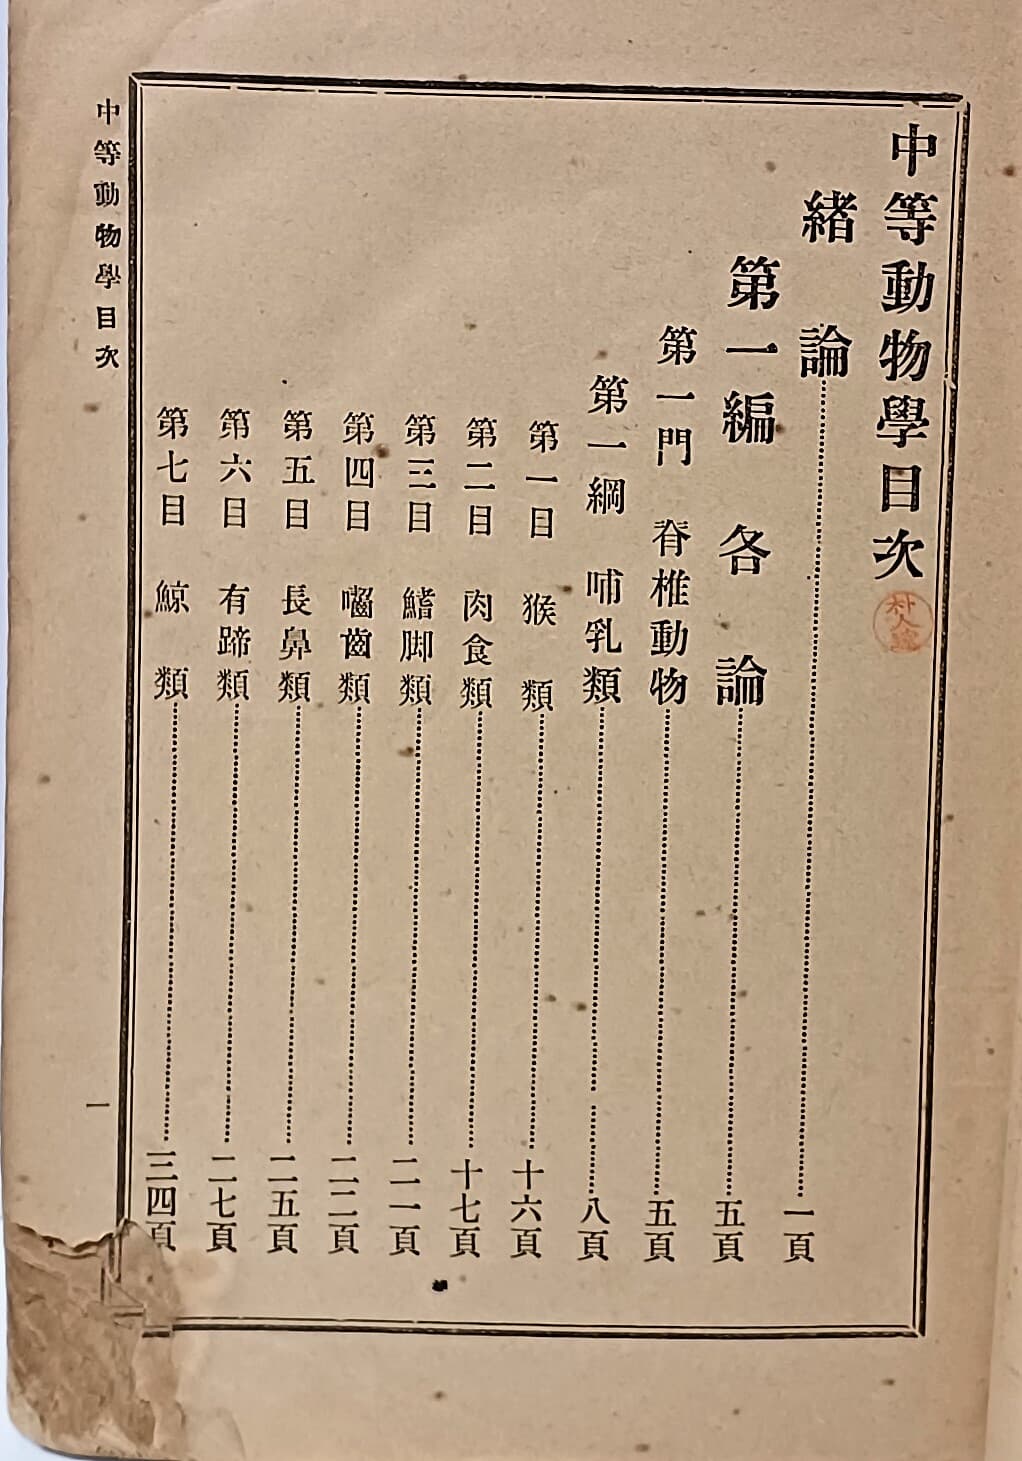 中等動物學目次
緒論 一頁
第一編 各論 五頁
第一門 脊椎動物 五頁
第一綱 哺乳類 八頁
第一目 猴類 十六頁
第二目 肉食類 十七頁
第三目 鰭脚類 二一頁
第四目 囓齒類 二二頁
第五目 長鼻類 二五頁
第六目 有蹄類 二七頁
第七目 鯨類 三四頁
中等動物學目次
一